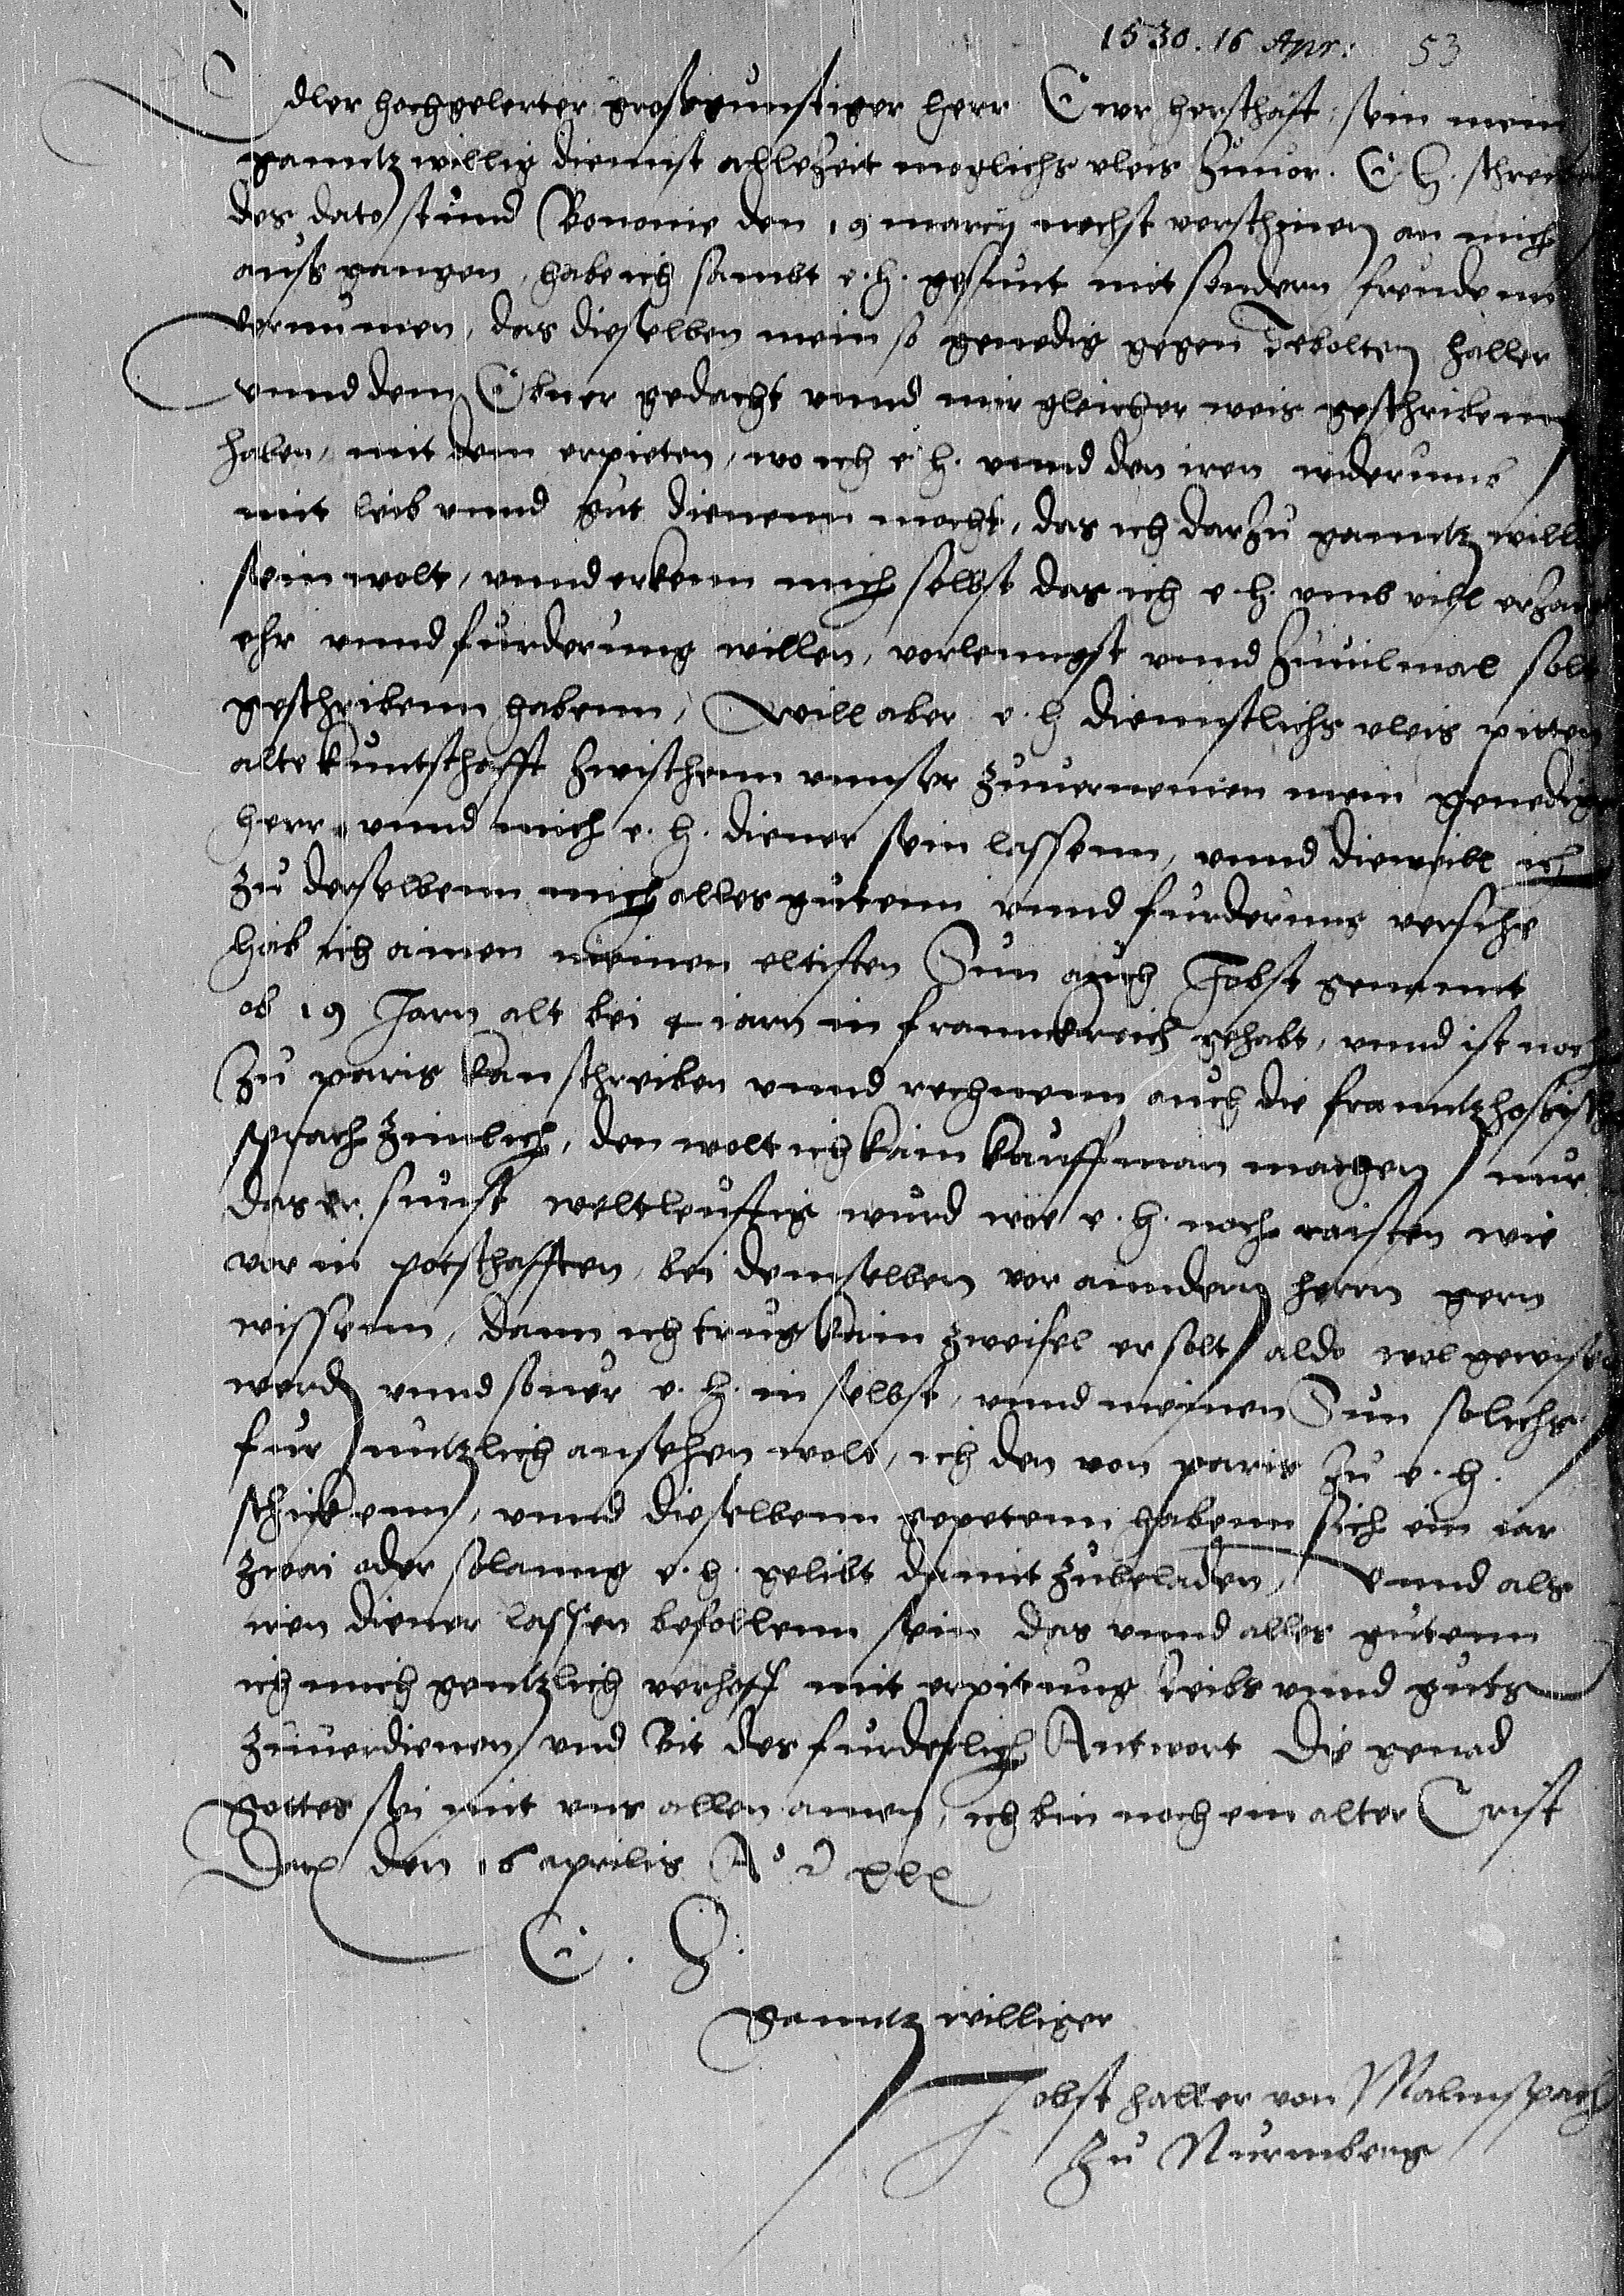 1530. 16 Apr: 53
Edler hochgelerter grosgunstiger herr Ewr herschaft sein mein
ganntz willig dienst allezeit moglichs vleis zuuor. E. H. schreiben
des dato stund Bononie den 19 marcy nechst verschinen an mich
aussgangen, habe ich sambt e. h. gesunt mit sondern freudenn
vernumen, das dieselben mein so genedig gegen Tebolten haller
vnnd dem Ebner gedacht vnnd mir gleicher weis geschribenn
haben, mit dem erpieten, wo ich e. h. vnnd den iren widerumb
mit leib vnnd gut dienenn mocht, das ich darzu ganntz willig
sein wolt, vnnd erkenn mich selbst das ich e. h. vmb vihl erzaigt
ehr vnnd furderung willen, vorlenngst vnnd zuuilmal solt
geschribenn habenn, Will aber e. h dienstlichs vleis pitten
alte kuntschafft zwischenn vnnser zuuernemen mein genediger
herr vnnd mich e. h. diener sein lassenn, vnnd dieweihl ich
zu derselbenn mich alles gutenn vnnd furderung versihe
hab ich ainen meinen eltisten Sun auch Jobst genannt
ob 19 Jarn alt bei 4 iarn in franckreich gehabt, vnnd ist noch
zu paris kan schreiben vnnd rechnenn auch die franntzhosisch
sprach zimlich, den wolt ich kain kauffman machen nur
das er sunst weltleuftig wurd wie e. h. noch raisten wie
vor in potschafften, bei demselben vor anndern herrn gern
wissenn, dann ich trug kain zweifel er solt aldo wol gewisen
werd vnnd souer e. h. in selbst, vnnd meinen Sun solichs
fur nutzlich ansehen wolt, ich den von paris zu e. h.
schickenn, vnnd dieselbenn gepetenn habenn sich ein iar
zwai oder solanng e. h. gelibt damit zubeladen, vnnd als
iren diener lassen befollenn sein das vnnd alles gutenn
ich mich gentzlich verhoff mit erpietung leibs vnnd guts
zuuerdienen vnd Bit des furderlich Antwort Die genad
Gottes sei mit vns allen amen, ich bin noch ein alter Crist
Dat den 16 aprilis A° 2 xxx
E. H.
Ganntz williger
Jobst haller von Malmspach
zu Nurmberg